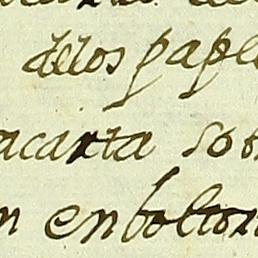 delos pape
acarta sob
n enbolton